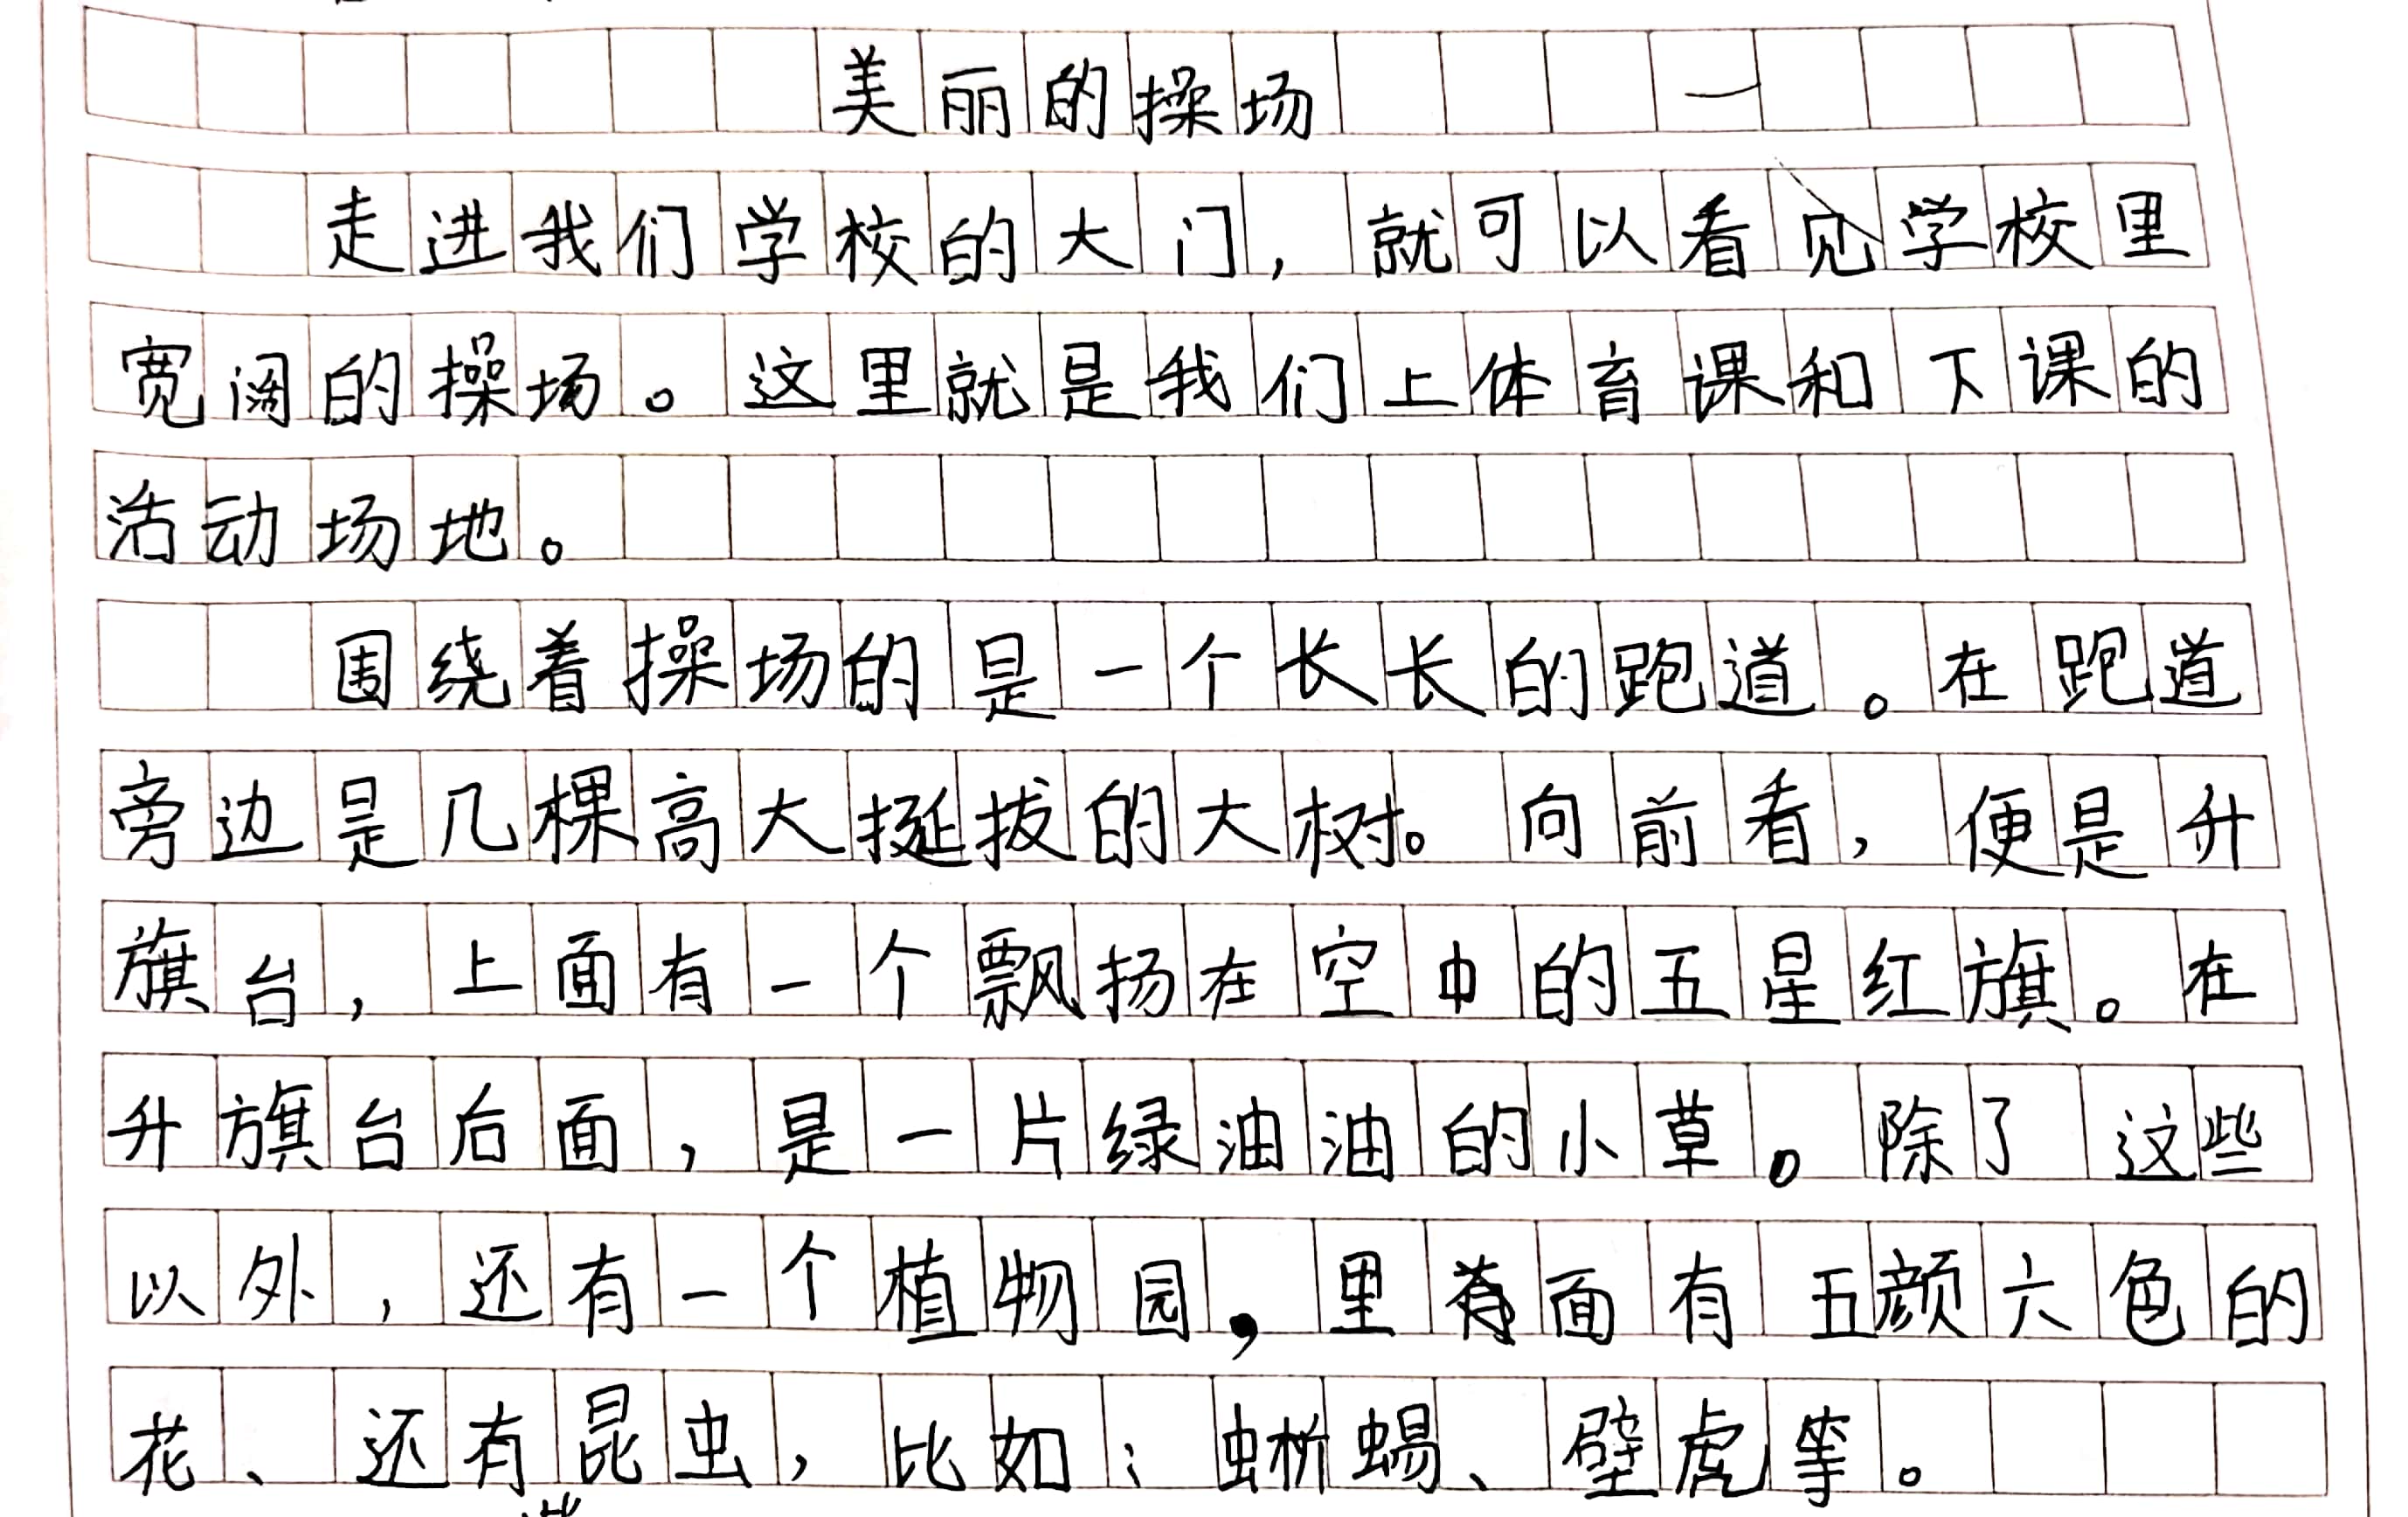 美丽的操场
走进我们学校的大门，就可以看见学校里
宽阔的操场。这里就是我们上体育课和下课的
活动场地。
围绕着操场的是一个长长的跑道。在跑道
旁边是几棵高大挺拔的大树。向前看，便是升
旗台，上面有一个飘扬在空中的五星红旗。在
升旗台后面，是一片绿油油的小草。除了这些
以外，还有一个植物园，里面有五颜六色的
花、还有昆虫，比如；蜥蜴、壁虎等。